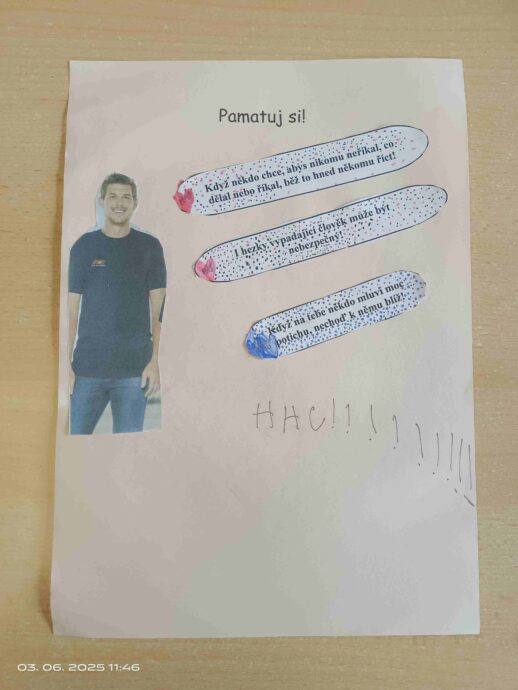 Pamatuj si!
Když někdo chce, abys nikomu neříkal, co
dělal nebo říkal, běž to hned někomu říct!
I hezky vypadající člověk může být
nebezpečný!
Když na tebe někdo mluví moc
potichu, nechoď k němu blíž!
03. 06. 2025 11:46